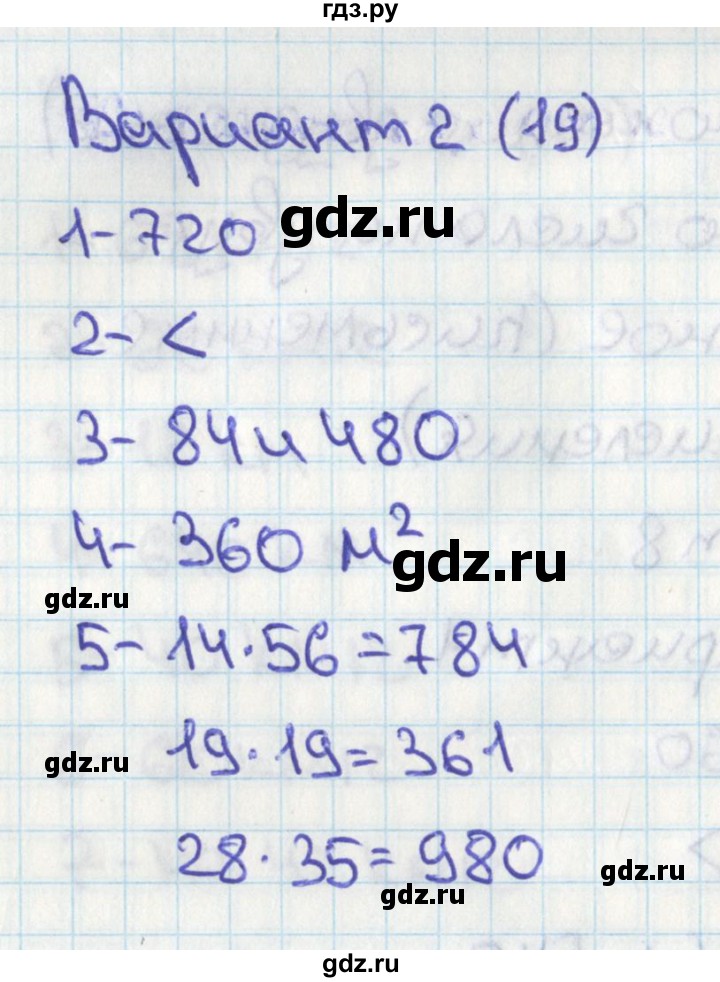 гдз.ру
Вариант 2 (19)
1-720 gdz.ru
2- <
3- 84 и 480
4- 360 м²
gdz.ru gdz.ru
5- 14·56=784
gdz.ru 19·19=361
28·35=980 gdz.ru
gdz.ru
gdz.ru